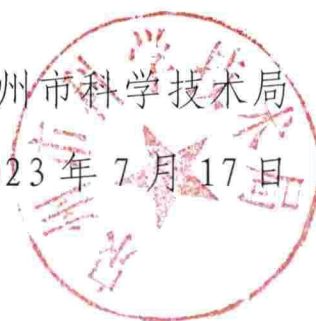 州市科学技术局
23年7月17日